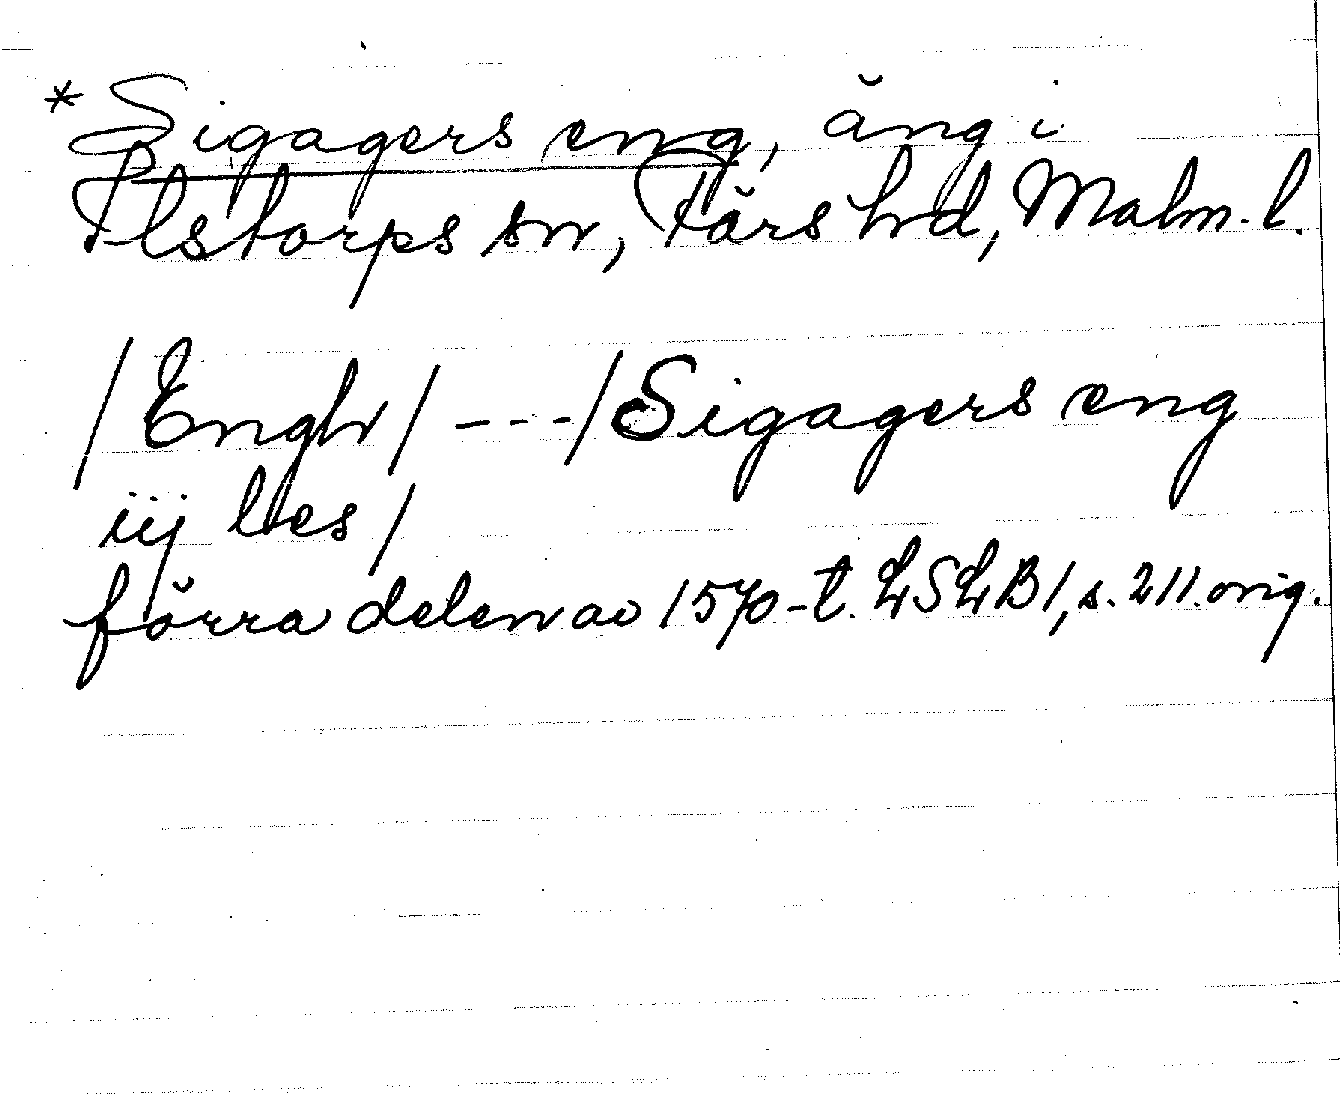 * Sigagers eng, äng i
Ilstorps sn, Färs hd, Malm. l.
/Engh/ ---/Sigagers eng
iij lies/
förra delen av 1570-t. LSLB1, s. 211. orig.